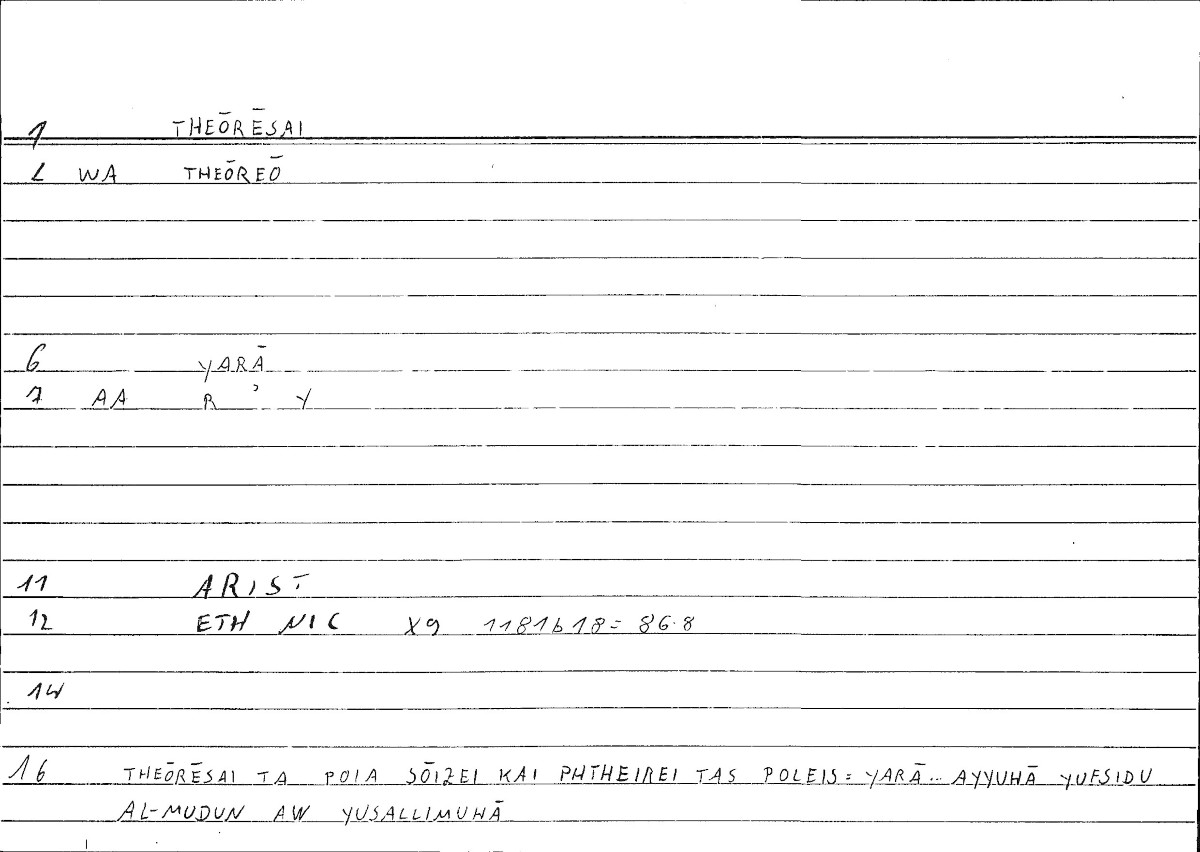 1 THEŌRĒSAI
2 WA THEŌREŌ
6 YARĀ
7 AA R ʾ Y
11 ARIST
12 ETH NIC X9 1181b18= 86.8
14
16 THEŌRĒSAI TA POIA SŌIZEI KAI PHTHEIREI TAS POLEIS = YARĀ... AYYUHĀ YUFSIDU
AL-MUDUN AW YUSALLIMUHĀ